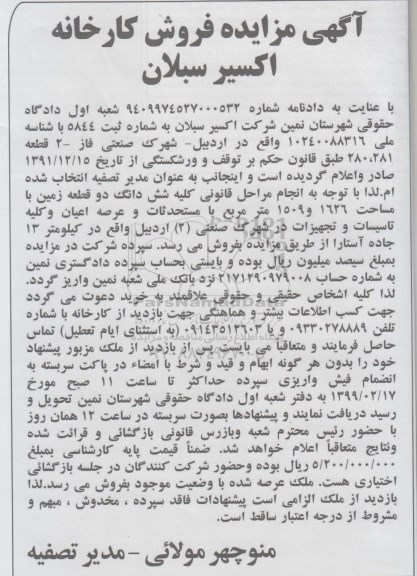 آگهی مزایده فروش کارخانه
اکسیر سبلان
با عنایت به دادنامه شماره ۹۴۰۹۹۷۴۵۲۷۰۰۰۵۳۲ شعبه اول دادگاه
حقوقی شهرستان نمین شرکت اکسیر سبلان به شماره ثبت ۵۸۴۴ با شناسه
ملی ۱۰۲۴۰۰۸۸۳۱۶ واقع در اردبیل- شهرک صنعتی فاز ۲- قطعه
۲۸۰.۲۸۱ طبق قانون حکم بر توقف و ورشکستگی از تاریخ ۱۳۹۱/۱۲/۱۵
صادر واعلام گردیده است و اینجانب به عنوان مدیر تصفیه انتخاب شده
ام.لذا با توجه به انجام مراحل قانونی کلیه شش دانگ دو قطعه زمین با
مساحت ۱۶۲۶ و۱۵۰۹ متر مربع با مستحدثات و عرصه اعیان وکلیه
تاسیسات و تجهیزات در شهرک صنعتی (۲) اردبیل واقع در کیلومتر ۱۳
جاده آستارا از طریق مزایده بفروش می رسد. سپرده شرکت در مزایده
بمبلغ سیصد میلیون ریال بوده و بایستی بحساب سپرده دادگستری نمین
به شماره حساب ۲۱۷۱۲۹۰۹۷۹۰۰۸ نزد بانک ملی شعبه نمین واریز گردد.
لذا کلیه اشخاص حقیقی و حقوقی علاقمند به خرید دعوت می گردد
جهت کسب اطلاعات بیشتر و هماهنگی جهت بازدید از کارخانه با شماره
تلفن ۰۹۳۳۰۲۷۸۸۸۹ و یا ۰۹۱۴۳۵۱۳۶۰۳ (به استثنای ایام تعطیل) تماس
حاصل فرمایند و متعاقباً می بایست پس از بازدید از ملک مزبور پیشنهاد
خود را بدون هر گونه ابهام و قید و شرط با امضاء در پاکت سربسته به
انضمام فیش واریزی سپرده حداکثر تا ساعت ۱۱ صبح مورخ
۱۳۹۹/۰۲/۱۷ به دفتر شعبه اول دادگاه حقوقی شهرستان نمین تحویل و
رسید دریافت نمایند و پیشنهادها بصورت سربسته در ساعت ۱۲ همان روز
با حضور رئیس محترم شعبه وبازرس قانونی بازگشائی و قرائت شده
ونتایج متعاقباً اعلام خواهد شد. ضمناً قیمت پایه کارشناسی بمبلغ
۵/۲۰۰/۰۰۰/۰۰۰ ریال بوده وحضور شرکت کنندگان در جلسه بازگشائی
اختیاری هست. ملک عرصه شده با وضعیت موجود بفروش می رسد.لذا
بازدید از ملک الزامی است پیشنهادات فاقد سپرده ، مخدوش ، مبهم و
مشروط از درجه اعتبار ساقط است.
منوچهر مولائی -مدیر تصفیه